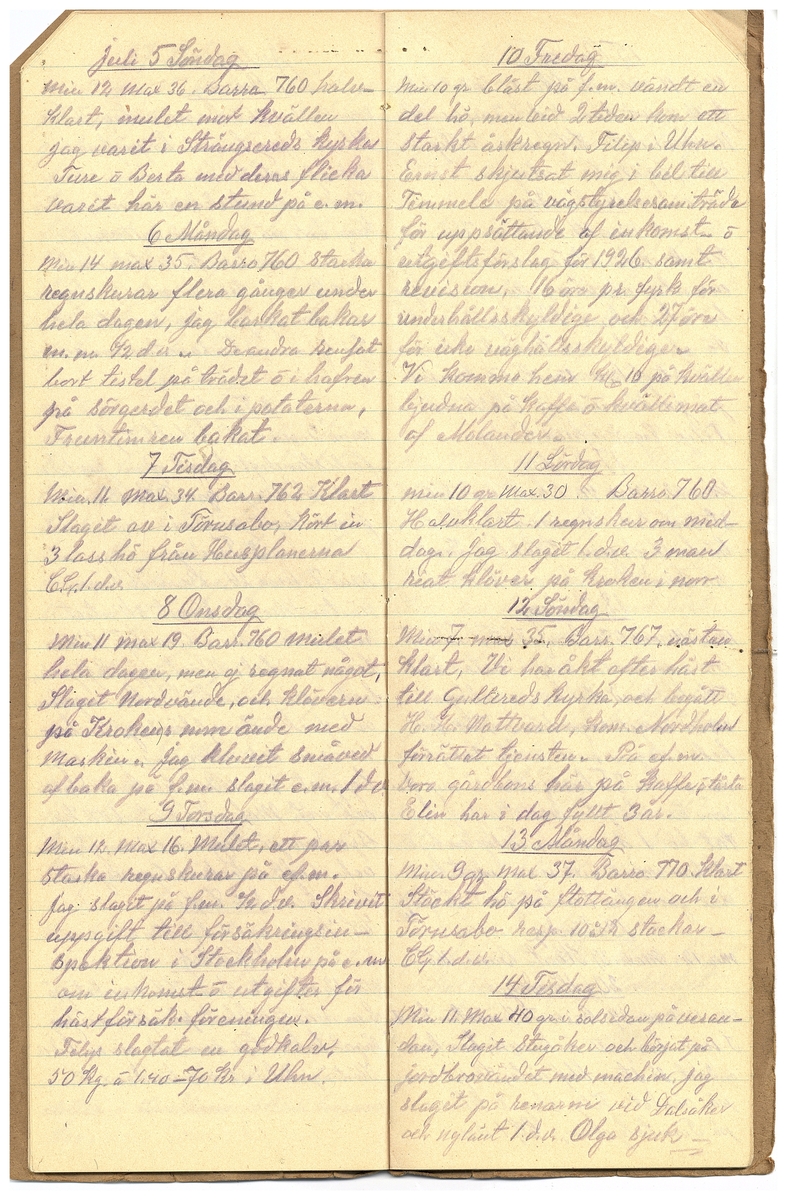 Juli 5 Söndag
Min 12 max 36. Barro 760 halv-
klart, mulet mot kvällen
jag varit i Strängsereds kyrka
Ture o Berta med deras flicka
varit här en stund på e.m.
6 Måndag
Min 14 max 35. Barro 760 Starka
regnskurar flera gånger under
hela dagen, jag barkat bakar
m.m. 1/2 d.v. De andra rensat
bort tistel på trädet ö i hafren
på sörgerdet och i potaterna,
Fruntimren bakat.
7 Tisdag
Min. 11. Max 34. Barr. 762 Klart
Slaget ose i Torusabo, kört in
3 lass hö från Husplanerna
1.d.v.
8 Onsdag
Min 11 max 19. Barr. 760 mulet
hela dagen, men ej regnat något,
Slaget Nordvände, och klövern
på Krokens norr ände med
Maskin. Jag kluvit småved
af baka på f.m. slagit e.m. 1 d.v.
9 Torsdag
Min 12. Max 16. Mulet, ett par
starka regnskurar på ef.m.
Jag slaget på f.m. 1/2 d.v. Skrivit
uppgift till försäkringsin-
spektion i Stockholm på e.m
om inkomst ö utgifter för
hästförsäk. föreningen.
Filip slagtat en gödkalv,
50 Kg. á 1.40 = 70 Kr. i Uhn.
10 Fredag
Min 10 gr. blåst på f.m. vändt en
del hö, men vid 2 tiden kom ett
starkt åskregn. Filip i Uhn.
Ernst skjutsat mig i bil till
Timmele på vägstyrelsesamträde
för uppsättande af inkomst- ö
utgiftsförslag för 1926 samt
revision. 16 öre pr. fyrk för
underhållsskyldige och 27 öre
för icke väghållsskyldige.
Vi komma hem kl. 10 på kvällen
bjudna på kaffe ö kvällsmat
af Molander.
11 Lördag
min 10 gr Max. 30. Barro. 760
Halvklart. 1 regnskur om med-
dag. Jag slaget 1. d.v. 3 man
reat klöver på kroken i norr
12 Söndag
Min 7 max 35. Barr. 767. nästan
klart, Vi ha åkt efter häst
till Gullereds kyrka, och begått
H. H. Nattvard, kom. Nordholm
förrättat tjensten. På ef.m.
voro gårdbons här på kaffe, ö tårta
Elin har i dag fyllt 3 år.
13 Måndag
Min. 9 gr. Max. 37. Barro. 770. Klart
Stackt hö på flottängen och i
Torusabo resp. 10 á 12 stackar
1. d.v.
14 Tisdag
Min 11. Max 40 gr. i solsidan på veran-
dan, Slaget Stuguåker och börjat på
jordbrovändet med machin. Jag
slaget på renarne vid Dalsåker
och nylänt 1. d.v. Olga sjuk